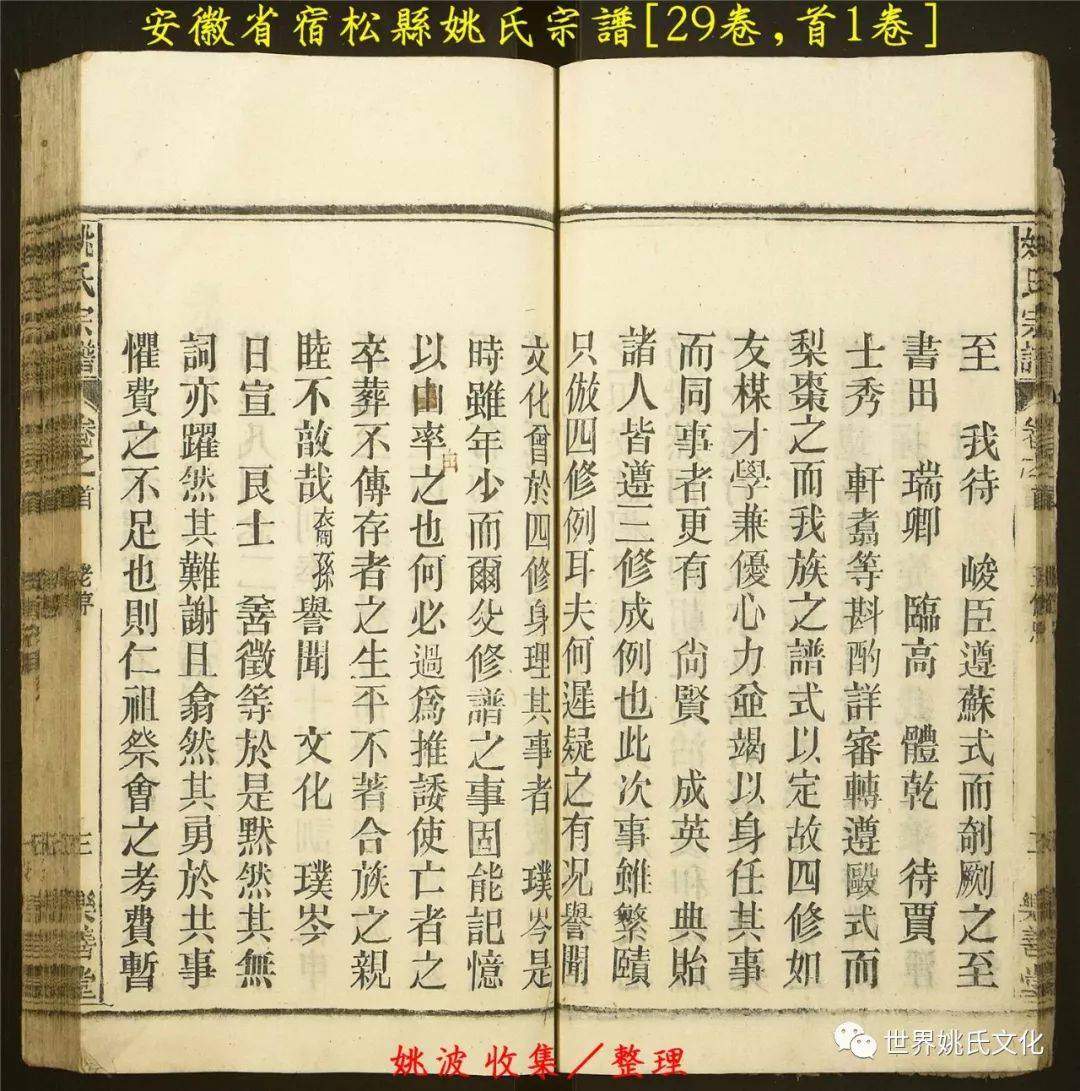 安徽省宿松縣姚氏宗譜[29卷,首1卷]
姚氏宗譜
樂善堂
至 我待 峻臣遵蘇式而剞劂之至
書田 瑞卿 臨高 體乾 待賈
士秀 軒翥等斟酌詳審轉遵毆式而
梨棗之而我族之譜式以定故四修如
友楳才學兼優心力並竭以身任其事
而同事者更有 尙賢 成英 典貽
諸人皆遵三修成例也此次事雖繁賾
只倣四修例耳夫何遲疑之有况譽聞
文化曾於四修身理其事者 璞岑是
時雖年少而爾父修譜之事固能記憶
以由率之也何必過爲推諉使亡者之
由
卒葬不傳存者之生平不著合族之親
睦不敨哉衣閣孫譽聞 文化 璞岑
日宣 艮士 善徵等於是默然其無
詞亦躍然其難謝且翕然其勇於共事
懼費之不足也則仁祖祭會之考費暫
姚氏宗譜 卷之首 老序 三 樂善堂
姚波收集/整理
世界姚氏文化